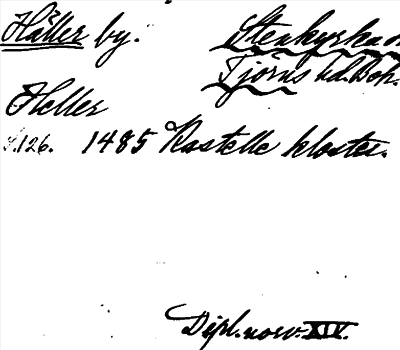 Häller by. Stenkyrka
Tjörns hd. Boh.
Heller
S.126. 1485 Kastelle kloster.
Dipl. norv. XIV.